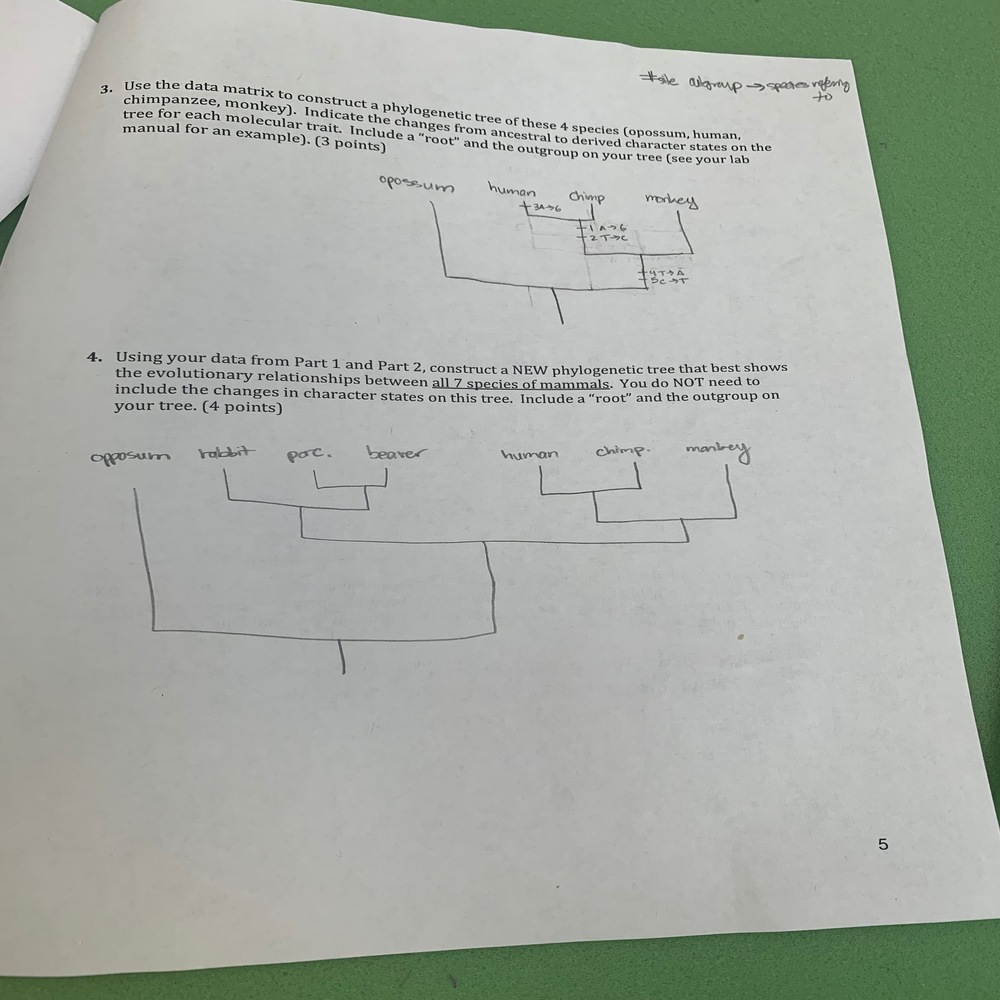 outgroup → species refering
to
3. Use the data matrix to construct a phylogenetic tree of these 4 species (opossum, human,
chimpanzee, monkey). Indicate the changes from ancestral to derived character states on the
tree for each molecular trait. Include a "root" and the outgroup on your tree (see your lab
manual for an example). (3 points)
opossum human chimp monkey
3A→G
1 A→G
2 T→C
4T→A
5C→T
4. Using your data from Part 1 and Part 2, construct a NEW phylogenetic tree that best shows
the evolutionary relationships between all 7 species of mammals. You do NOT need to
include the changes in character states on this tree. Include a "root" and the outgroup on
your tree. (4 points)
opposum rabbit porc. beaver human chimp. monkey
5